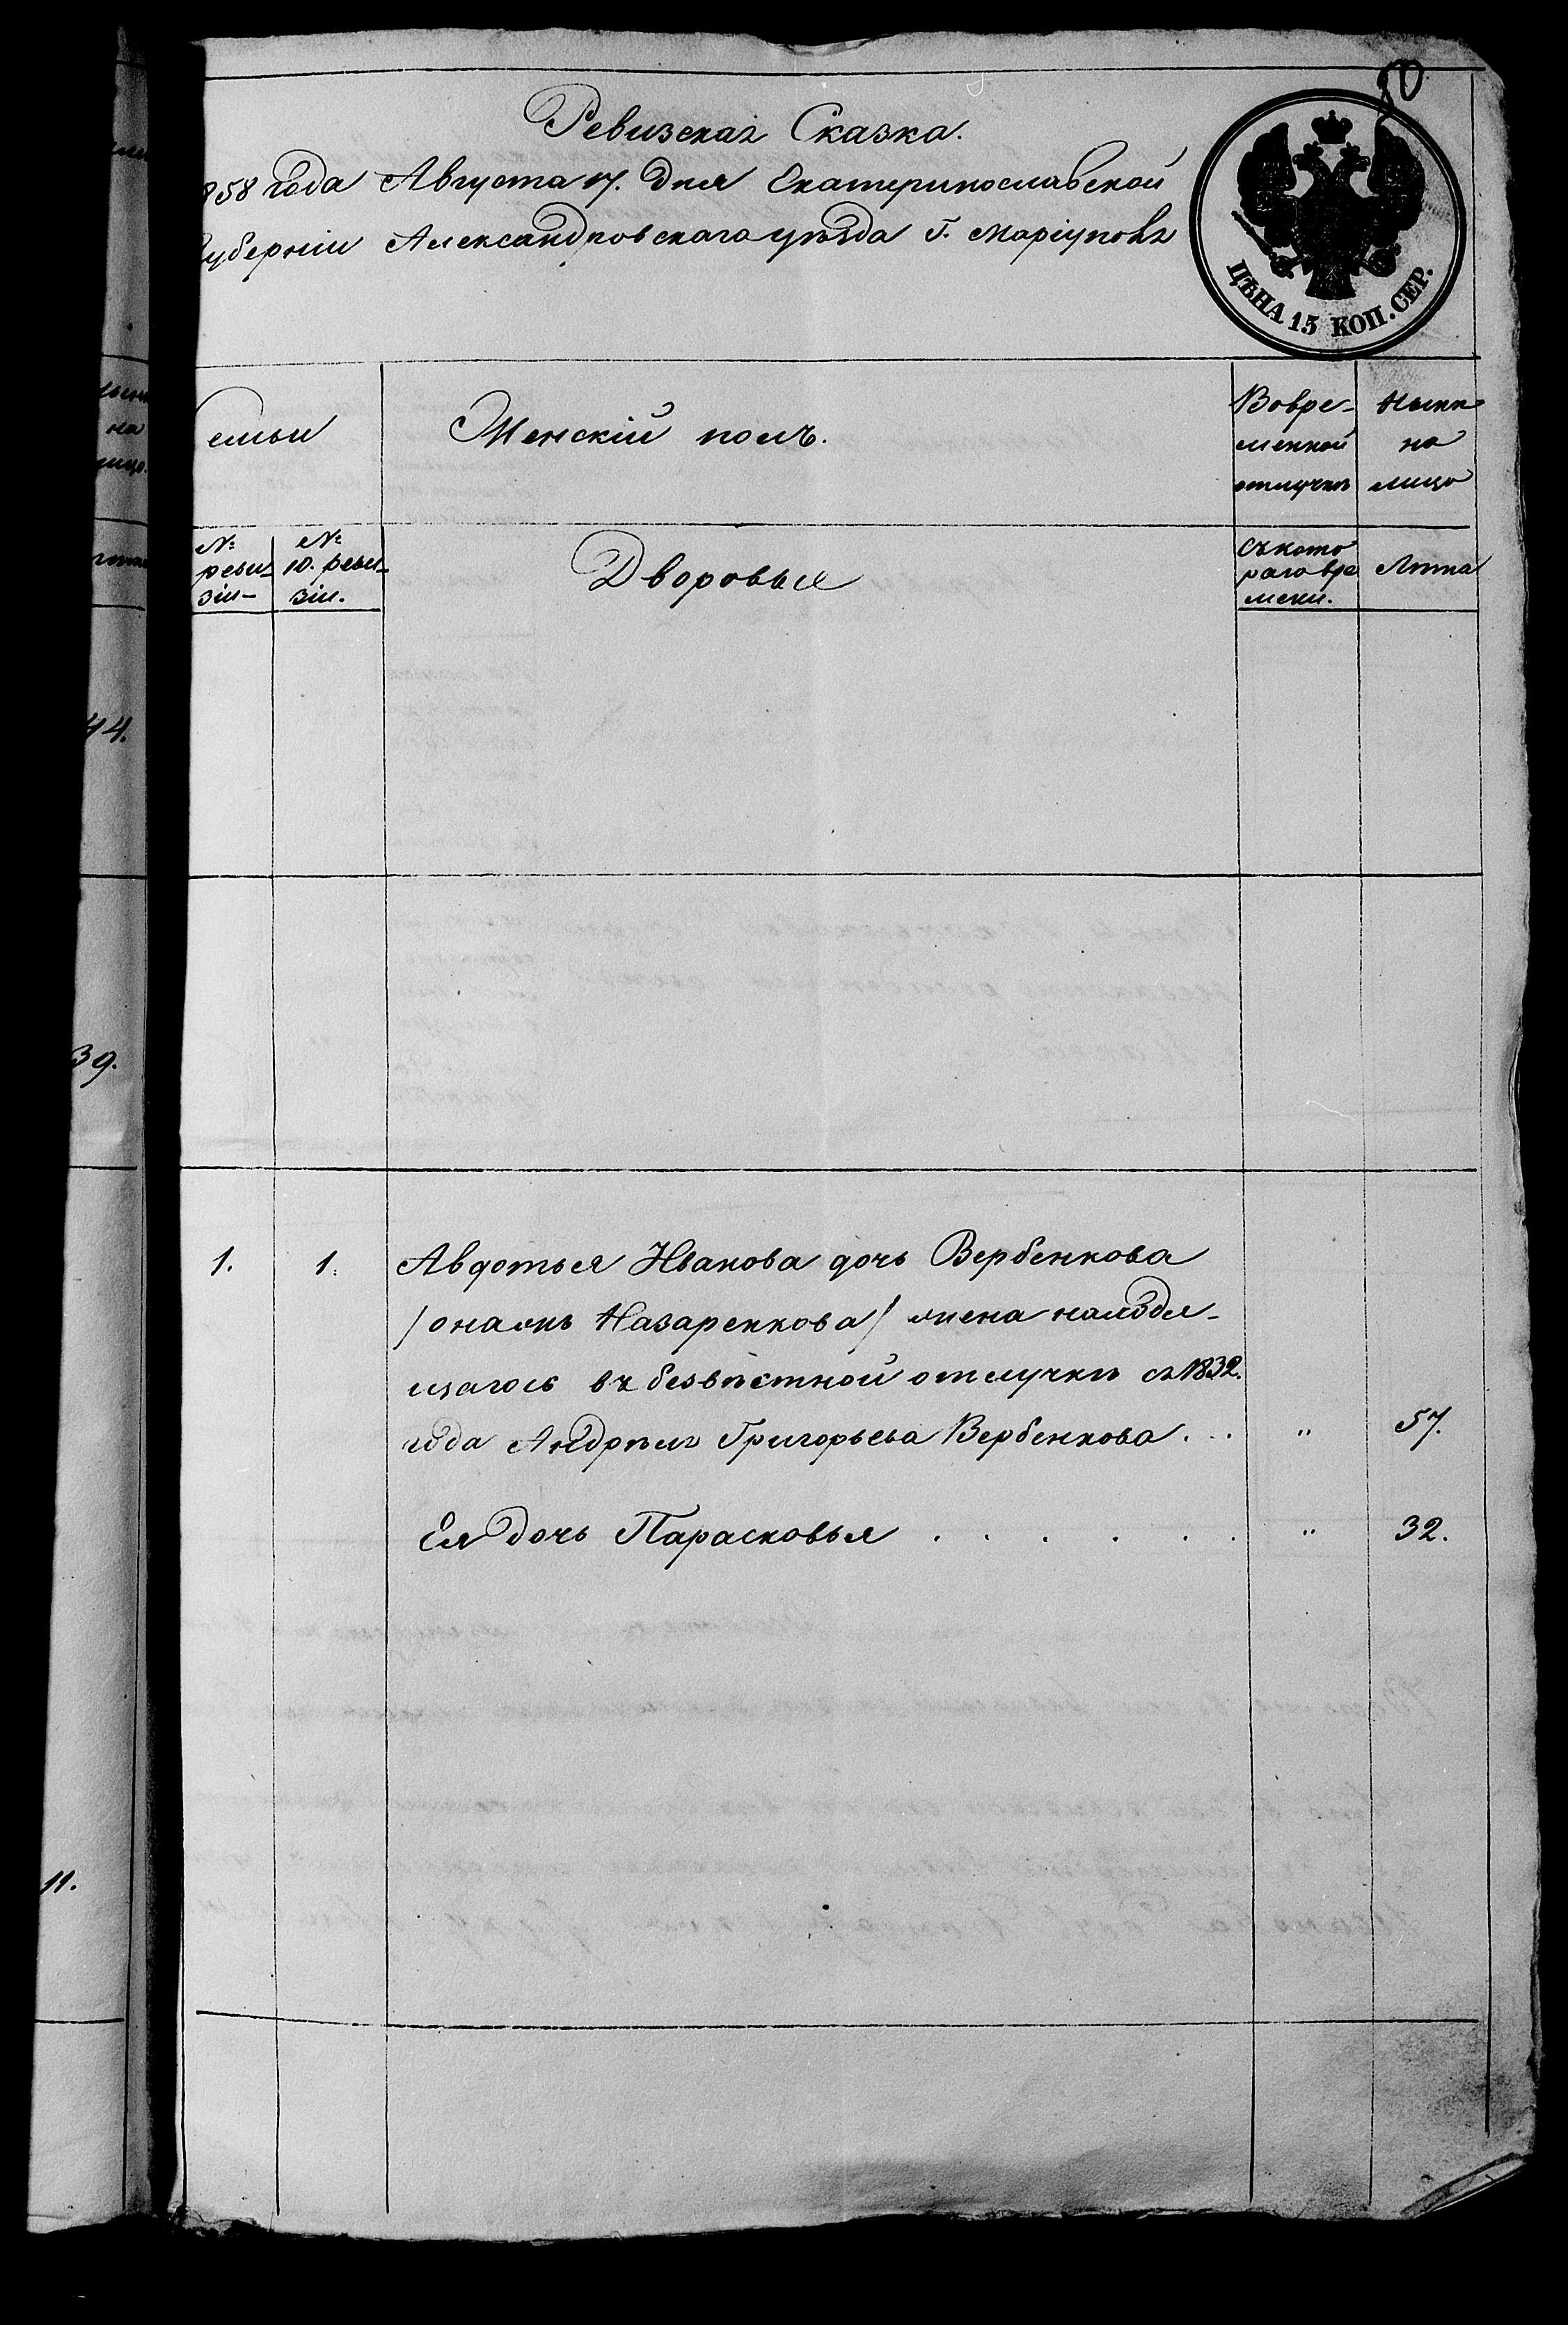 50
Ревизская Сказка.
858 года Августа 17. дня Екатеринославской
уберніи Александровскаго уѣзда Г. Маріуполь
ЦѢНА 15 КОП. СЕР.
емьи
Женскій полъ.
Вовре-
менной
отлучкѣ
Нынѣ
на
лицо
№
реви-
зіи
№
10. реви-
зіи.
Дворовыя
Съ кото
раго вре
мени.
Лѣта
44.
39.
11.
1.
1.
Авдотья Иванова дочь Вербенкова
/ онажъ Назаренкова / жена находя-
щагось въ безвѣстной отлучкѣ съ 1832.
года Андрѣя Григорьева Вербенкова . . . " 57.
Ея дочь Парасковья . . . . . . " 32.